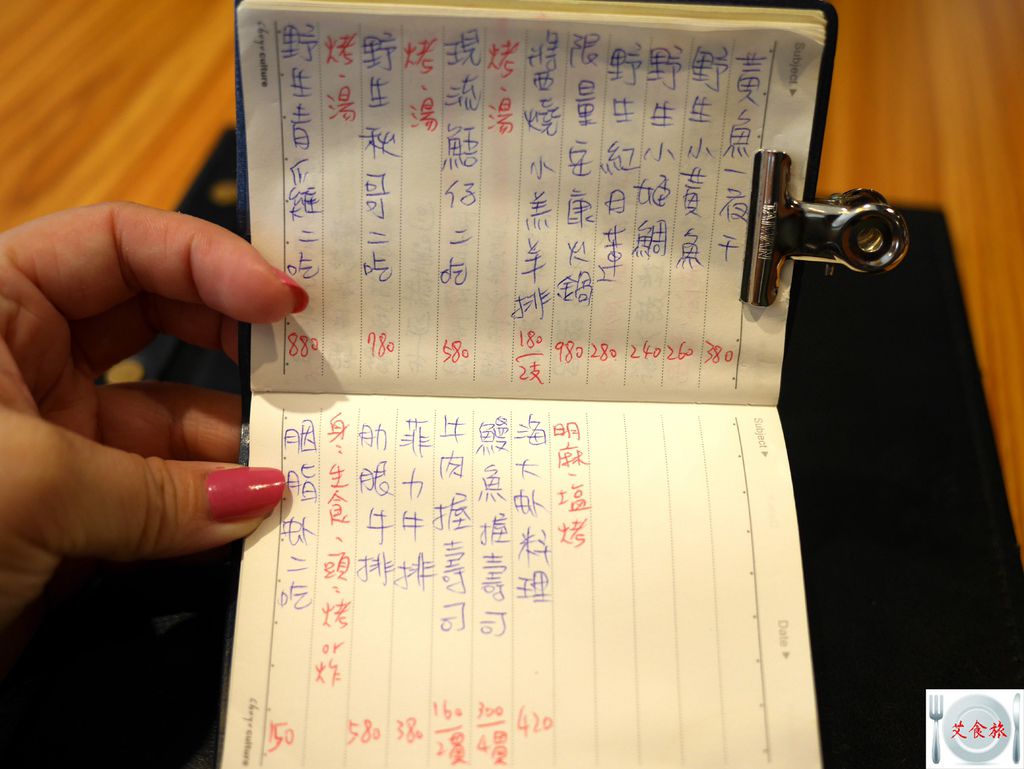 野生青爪雞二吃 880
烤、湯
野生秋哥二吃 780
烤、湯
現流鮚仔二吃 580
烤、湯
醬燒小羔羊排 180/2支
限量安康火鍋 980
野生紅目蓮 280
野生小鯛 240
野生小黃魚 260
黃魚一夜干 380
Subject
choyaculture
胭脂虾二吃 150
身:生食、頭:烤or炸
肋眼牛排 580
菲力牛排 380
牛肉握壽司 160/2貫
鰻魚握壽司 300/4貫
海大虾料理 420
明麻、塩烤
Subject
Date
艾食旅